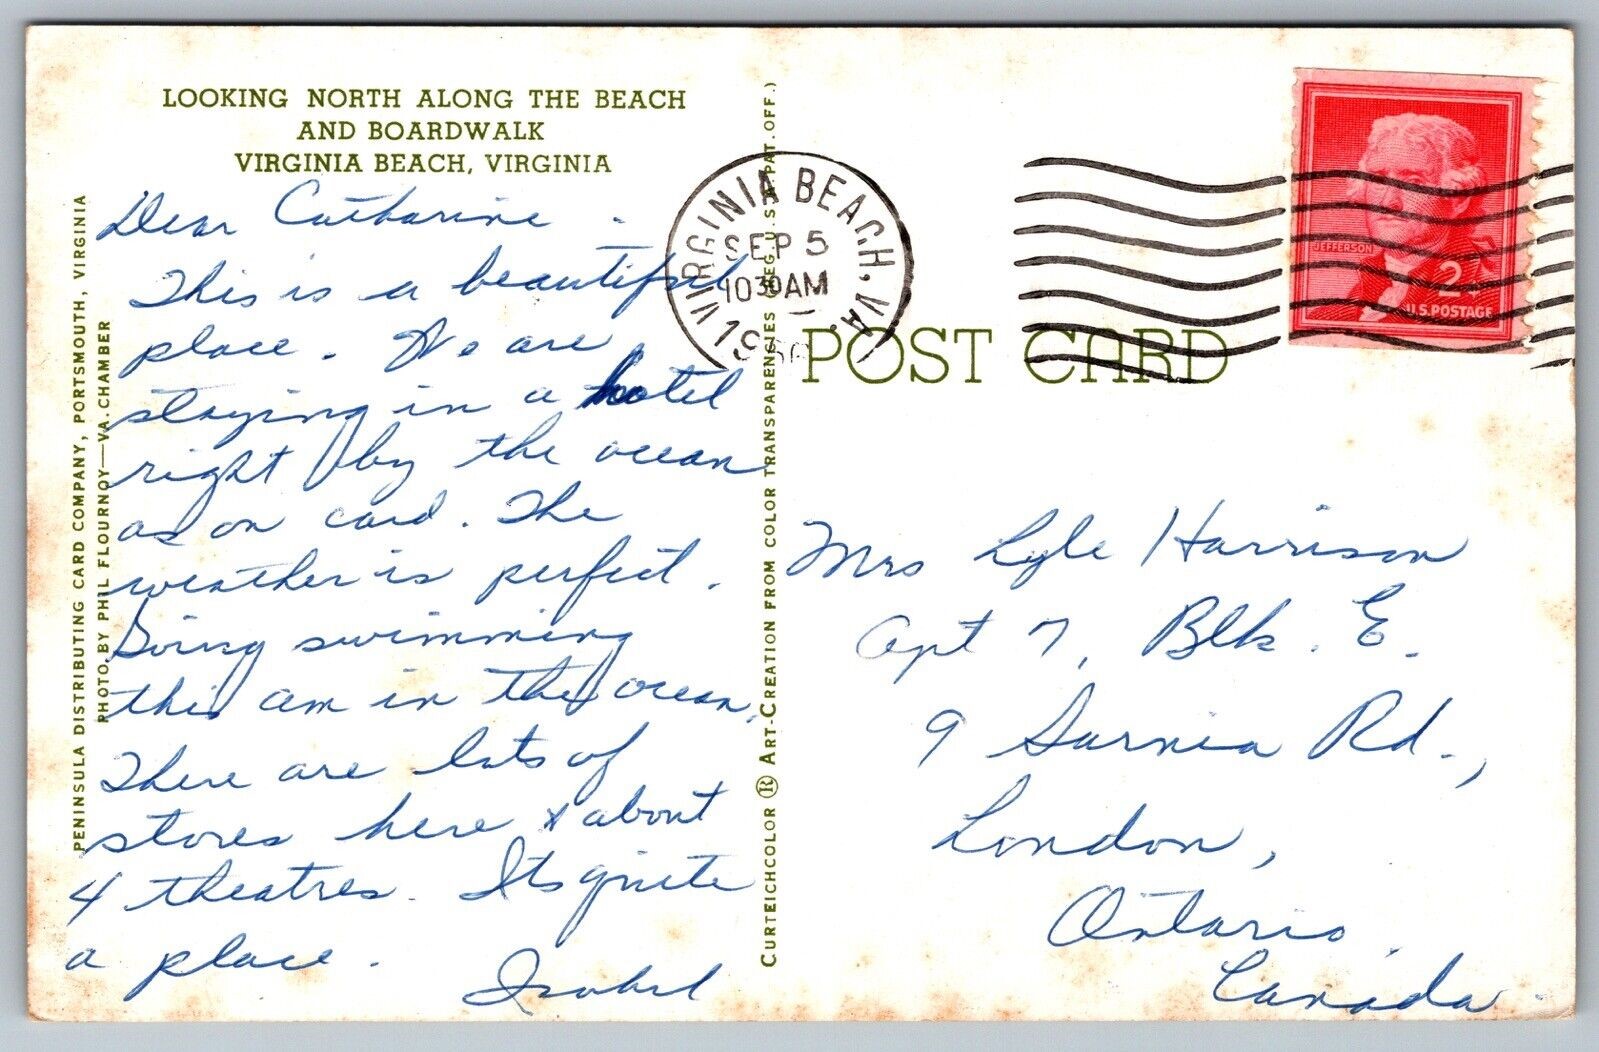 LOOKING NORTH ALONG THE BEACH
AND BOARDWALK
VIRGINIA BEACH, VIRGINIA
Dear Catharine.
This is a beautiful
place. We are
staying in a hotel
right by the ocean
as on card. The
weather is perfect.
Going swimming
this am in the ocean.
There are lots of
stores here & about
4 theatres. Its quite
a place.
Isobel
PENINSULA DISTRIBUTING CARD COMPANY, PORTSMOUTH, VIRGINIA
PHOTO BY PHIL FLOURNOY—VA. CHAMBER
CURTEICHCOLOR ® ART-CREATION FROM COLOR TRANSPARENCIES REG. U.S.A. PAT. OFF.)
VIRGINIA BEACH, VA.
SEP 5
10 30 AM
POST CARD
JEFFERSON
2¢
U.S. POSTAGE
Mrs Lyle Harrison
Apt 7, Blk. E.
9 Sarnia Rd.,
London,
Ontario.
Canada.